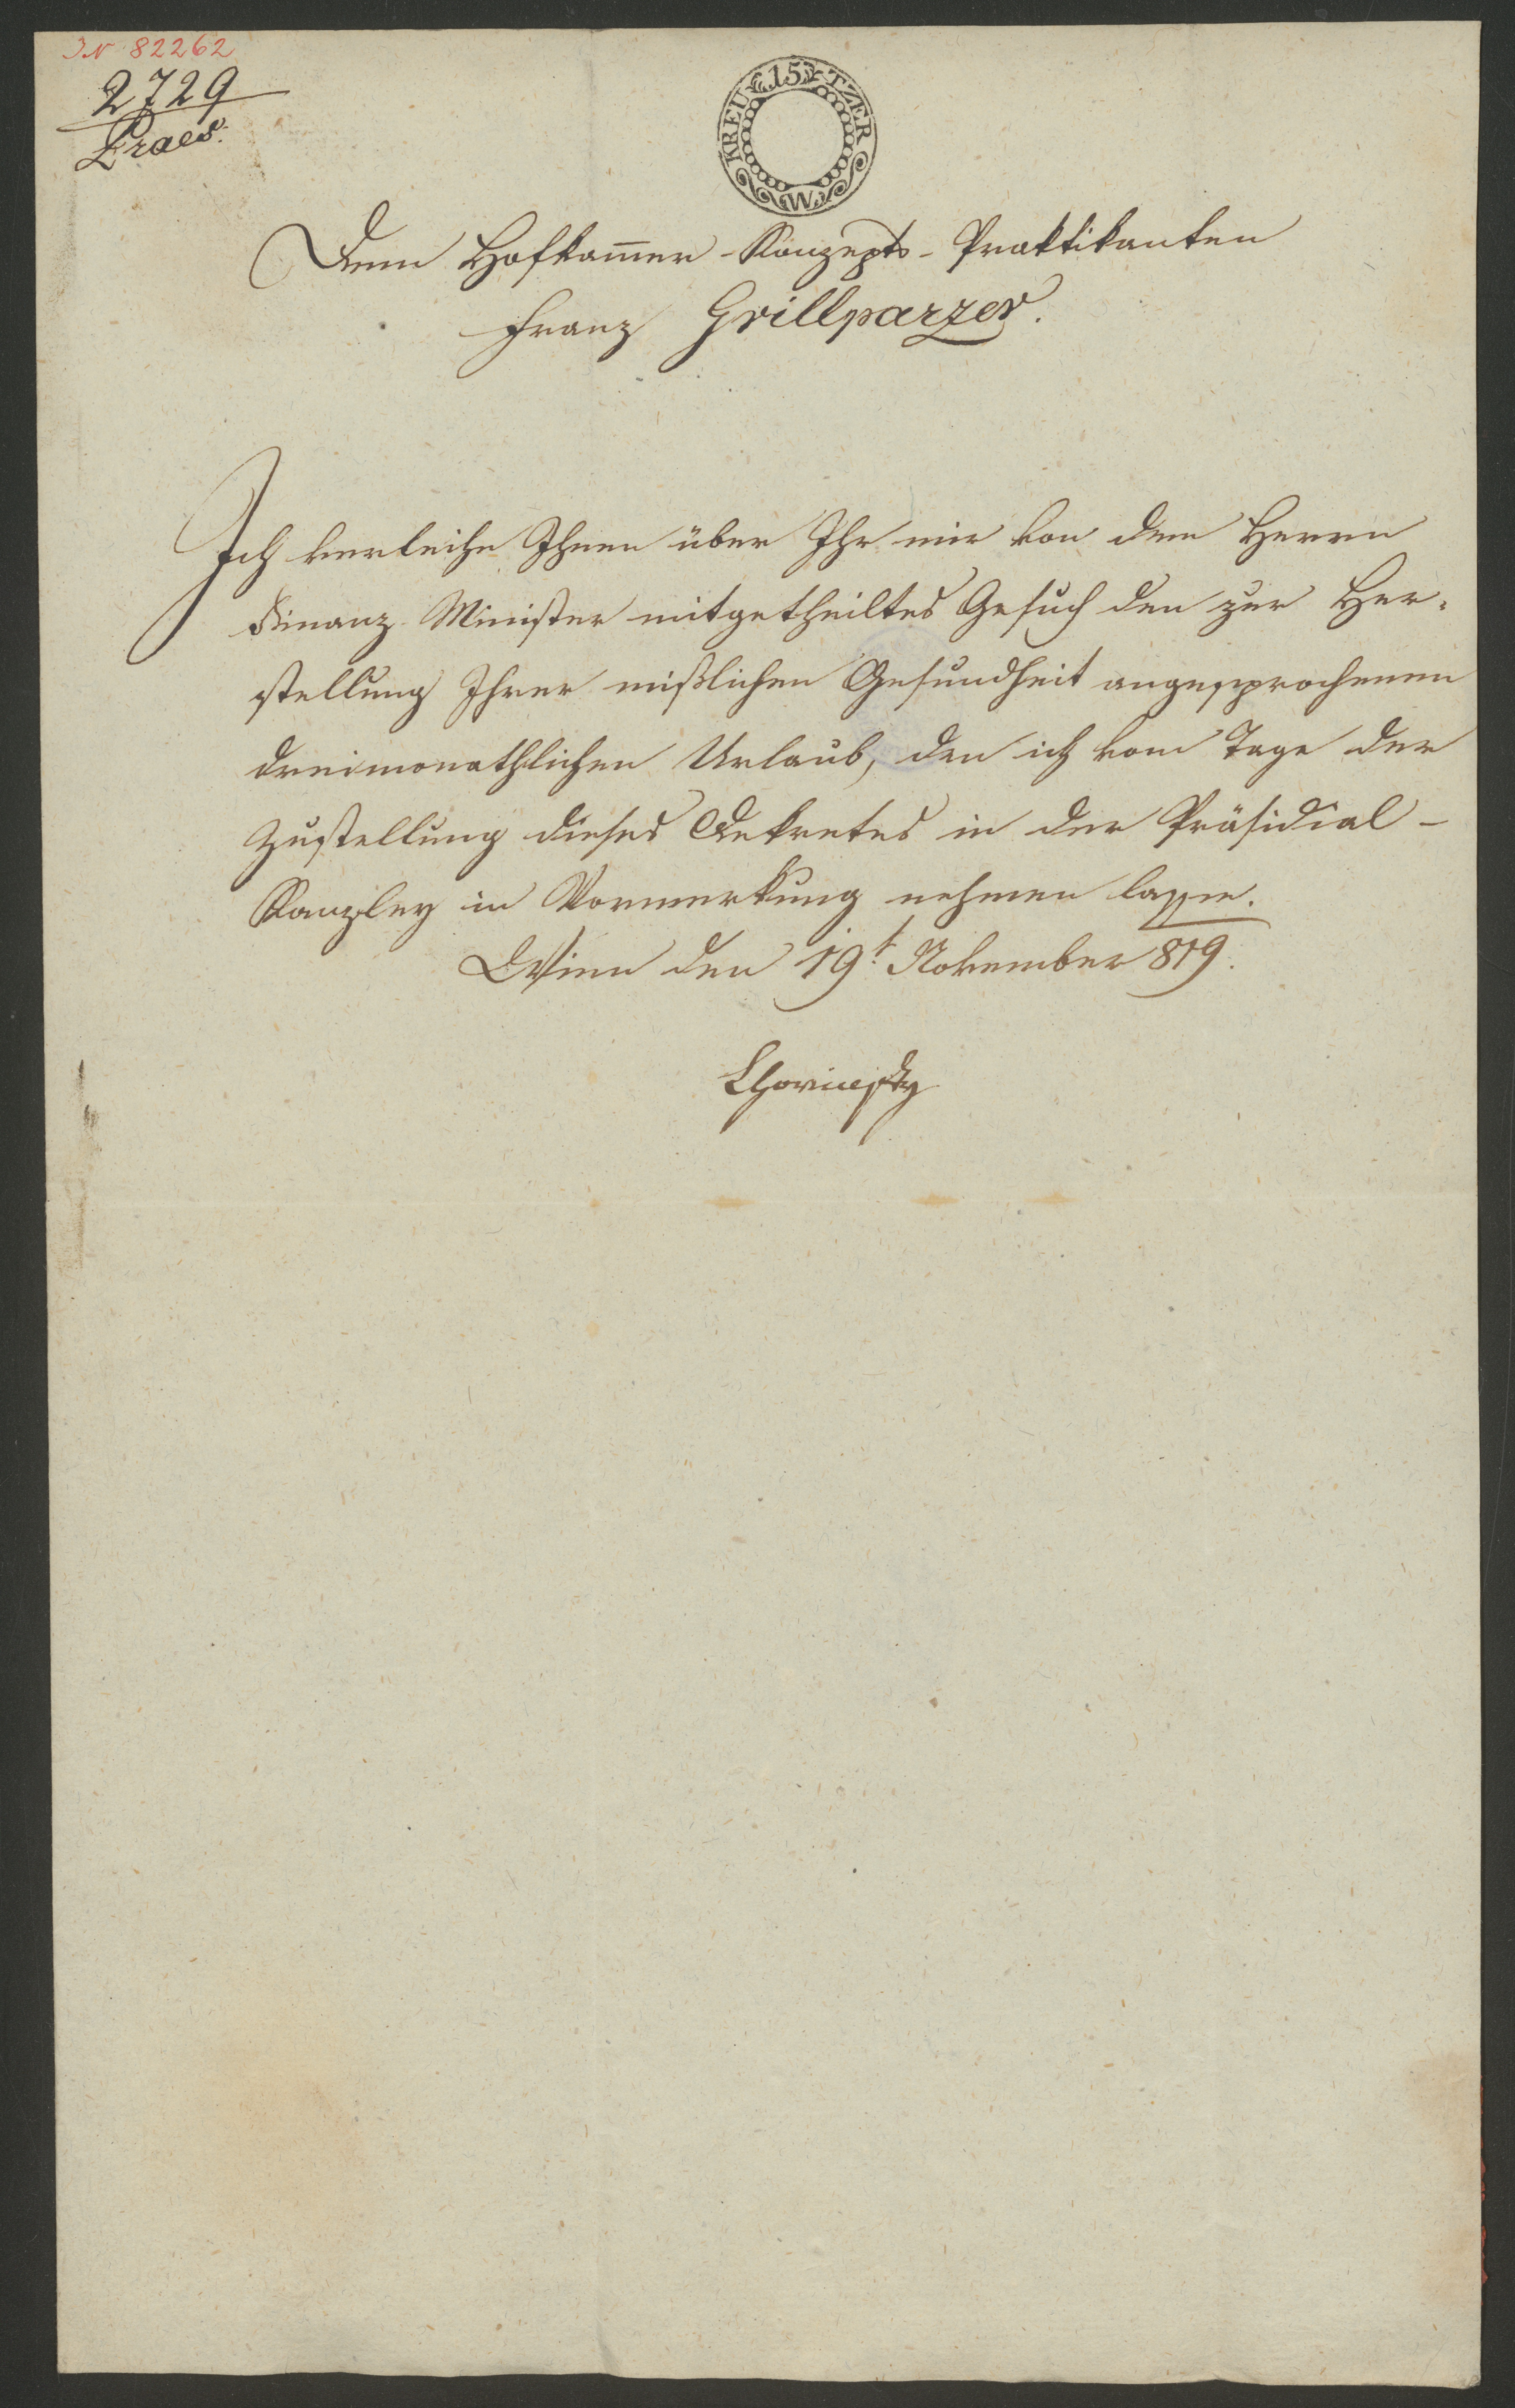 IN 82262
2729
Praes.
15 KREUTZER W
Dem Hofkam̅er-Konzepts-Praktikanten
Franz Grillparzer.
Ich verleihe Ihnen über Ihr mir von dem Herrn
Finanz-Minister mitgetheiltes Gesuch den zur Her-
stellung Ihrer mißlichen Gesundheit angesprochenen
dreimonathlichen Urlaub, den ich vom Tage der
Zustellung dieses Dekretes in der Präsidial-
Kanzley in Vormerkung nehmen lasse.
Wien den 19t. November 819.
Chorinsky